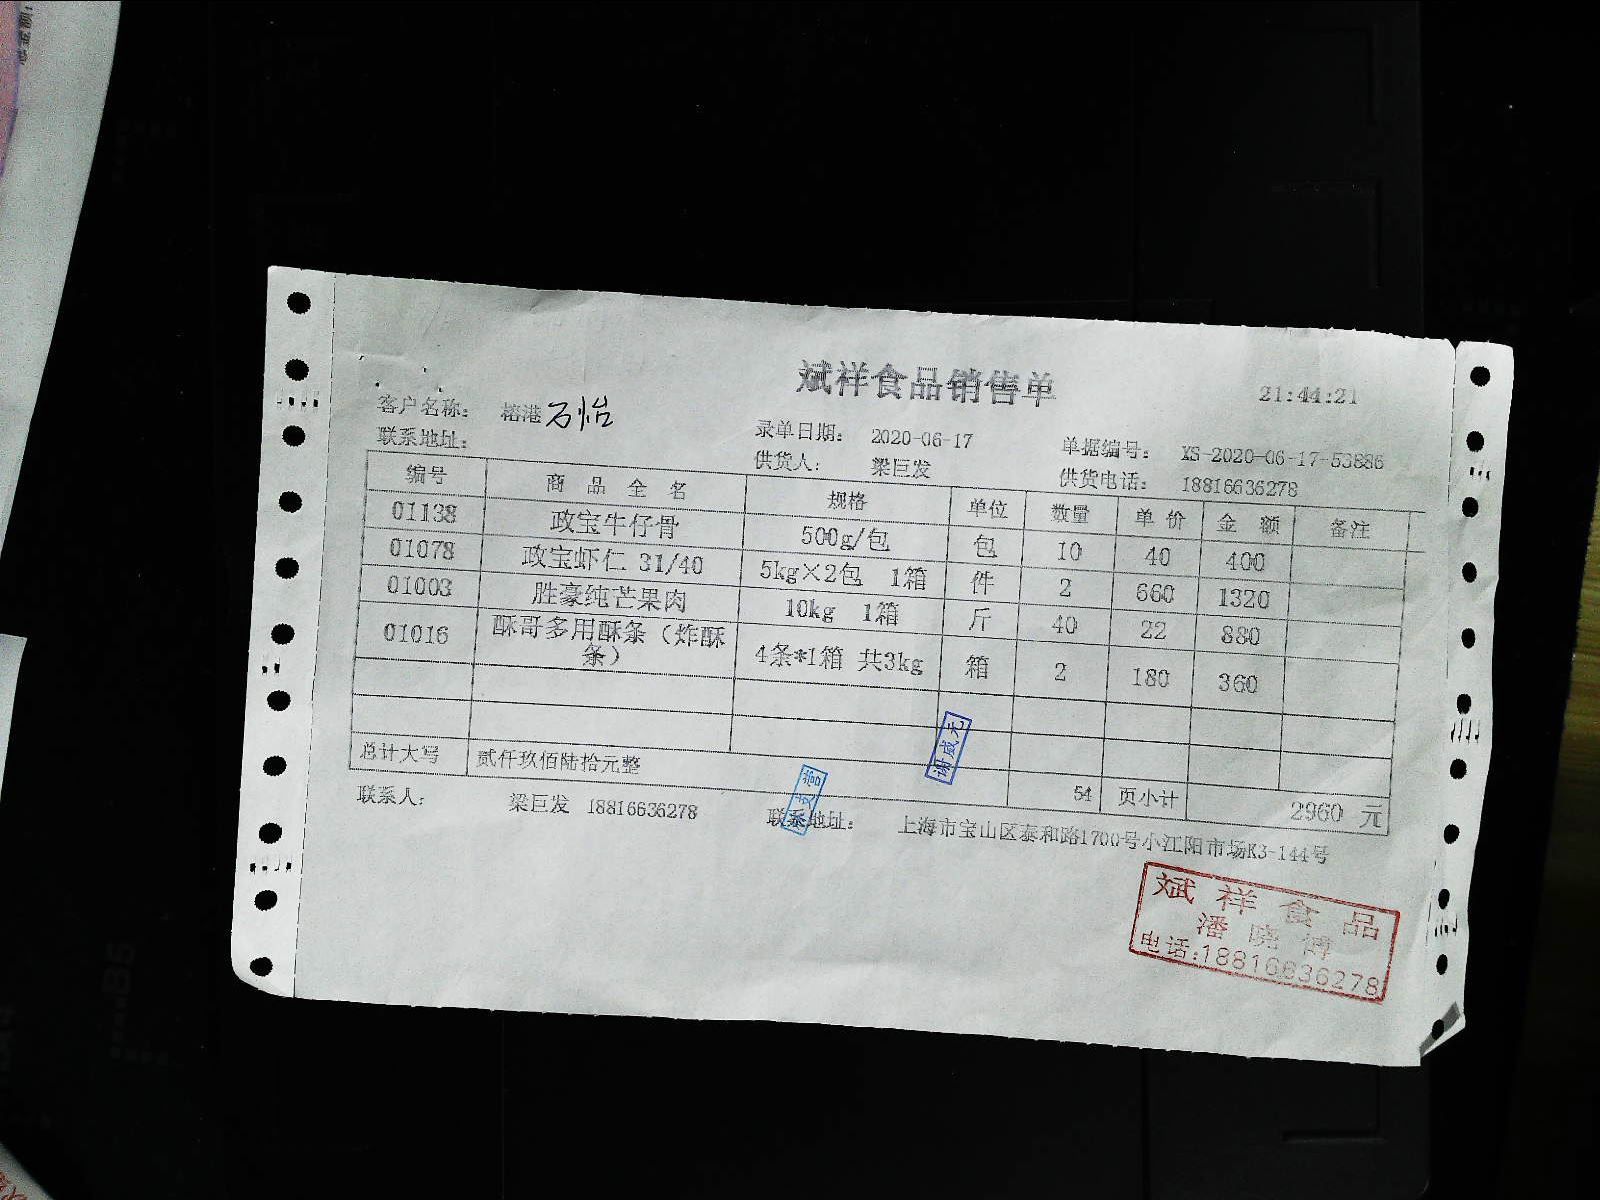 斌祥食品销售单
21:44:21
客户名称： 榕港 万怡
录单日期： 2020-06-17
单据编号： XS-2020-06-17-53886
联系地址：
供货人： 梁巨发
供货电话： 18816636278
编号 商品全名 规格 单位 数量 单价 金额 备注
01138 政宝牛仔骨 500g/包 包 10 40 400
01078 政宝虾仁 31/40 5kg×2包 1箱 件 2 660 1320
01003 胜豪纯芒果肉 10kg 1箱 斤 40 22 880
01016 酥哥多用酥条（炸酥条） 4条*1箱 共3kg 箱 2 180 360
总计大写 贰仟玖佰陆拾元整 54 页小计 2960 元
谢威元
联系人： 梁巨发 18816636278 联系地址： 上海市宝山区泰和路1700号小江阳市场K3-144号
斌祥食品
潘晓
电话:18816636278